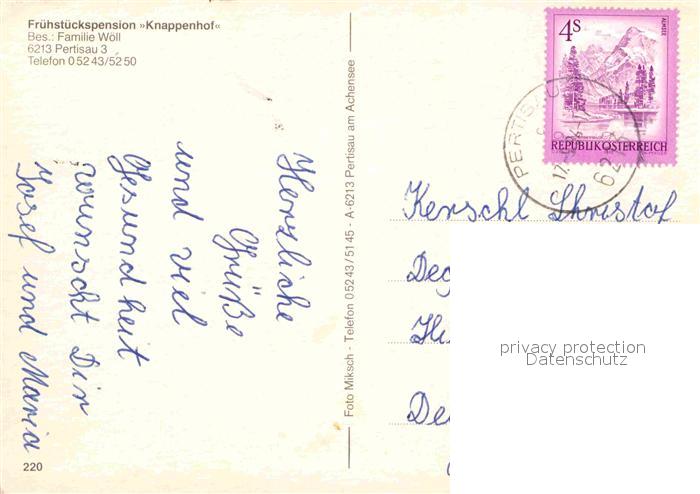 Frühstückspension »Knappenhof«
Bes.: Familie Wöll
6213 Pertisau 3
Telefon 0 52 43/52 50
Herzliche
Grüße
und viel
Gesundheit
wünscht Dir
Josef und Maria
220
Foto Miksch - Telefon 0 52 43/51 45 - A-6213 Pertisau am Achensee
4S
ALMSEE
REPUBLIK ÖSTERREICH
PERTISAU
17.
62
Kerschl Christof
Deg
Hi
De
privacy protection
Datenschutz